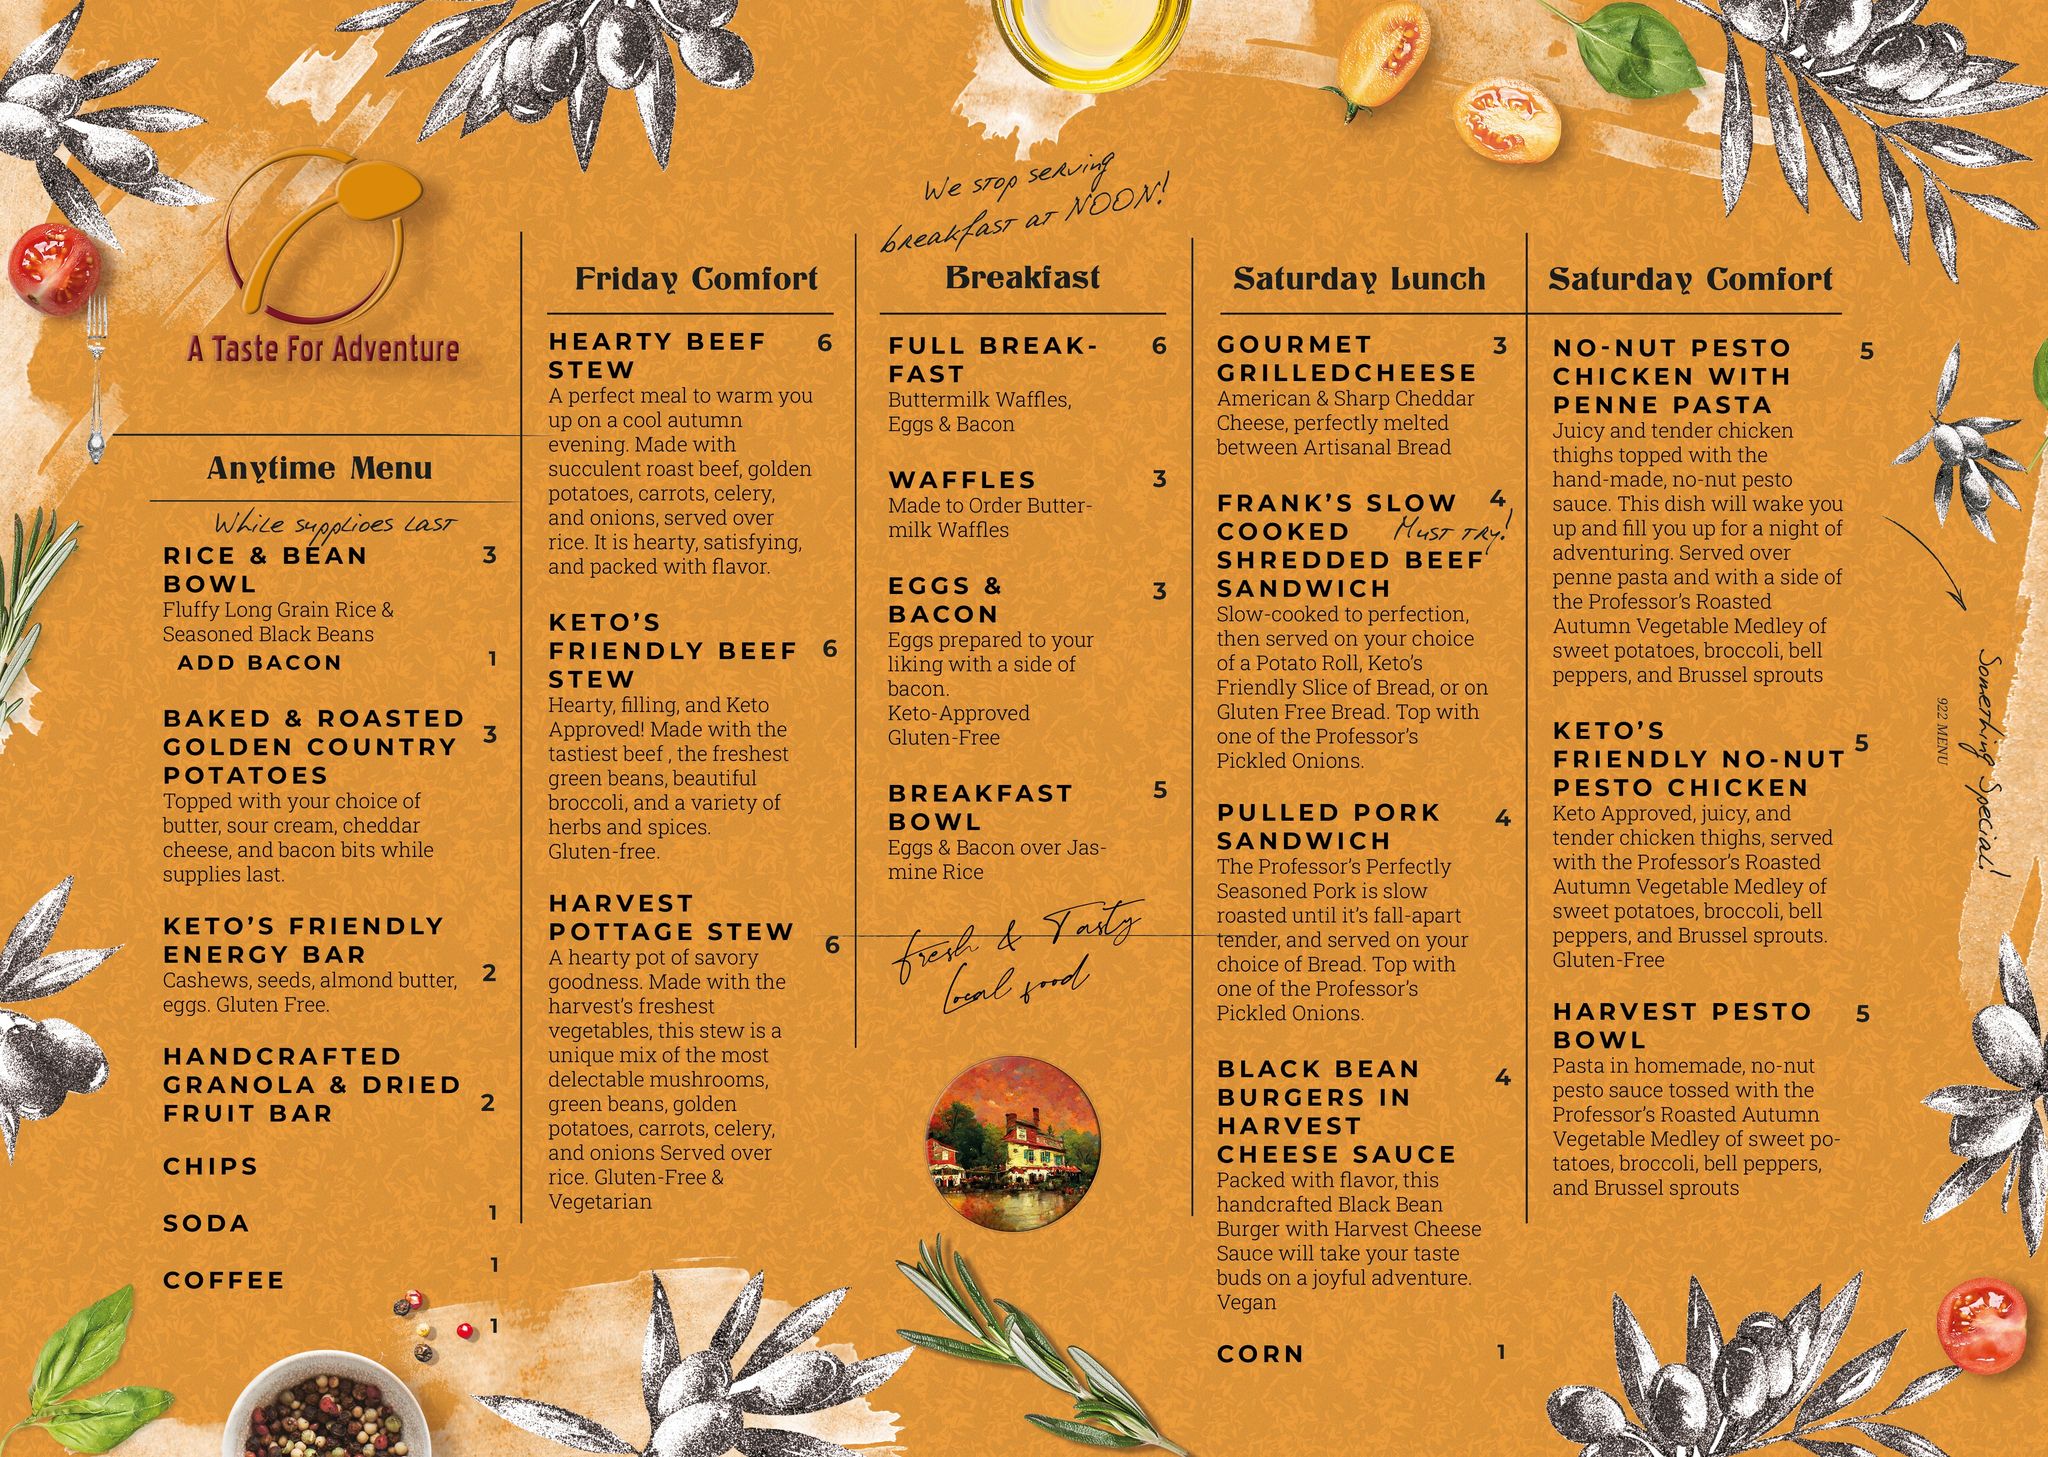 A Taste For Adventure
Anytime Menu
While supplioes last
RICE & BEAN 3
BOWL
Fluffy Long Grain Rice &
Seasoned Black Beans
ADD BACON 1
BAKED & ROASTED
GOLDEN COUNTRY 3
POTATOES
Topped with your choice of
butter, sour cream, cheddar
cheese, and bacon bits while
supplies last.
KETO'S FRIENDLY
ENERGY BAR
Cashews, seeds, almond butter, 2
eggs. Gluten Free.
HANDCRAFTED
GRANOLA & DRIED
FRUIT BAR 2
CHIPS
1
SODA
1
COFFEE
1
Friday Comfort
HEARTY BEEF 6
STEW
A perfect meal to warm you
up on a cool autumn
evening. Made with
succulent roast beef, golden
potatoes, carrots, celery,
and onions, served over
rice. It is hearty, satisfying,
and packed with flavor.
KETO'S
FRIENDLY BEEF 6
STEW
Hearty, filling, and Keto
Approved! Made with the
tastiest beef , the freshest
green beans, beautiful
broccoli, and a variety of
herbs and spices.
Gluten-free.
HARVEST
POTTAGE STEW 6
A hearty pot of savory
goodness. Made with the
harvest's freshest
vegetables, this stew is a
unique mix of the most
delectable mushrooms,
green beans, golden
potatoes, carrots, celery,
and onions Served over
rice. Gluten-Free &
Vegetarian
We stop serving
breakfast at NOON!
Breakfast
FULL BREAK- 6
FAST
Buttermilk Waffles,
Eggs & Bacon
WAFFLES 3
Made to Order Butter-
milk Waffles
EGGS & 3
BACON
Eggs prepared to your
liking with a side of
bacon.
Keto-Approved
Gluten-Free
BREAKFAST 5
BOWL
Eggs & Bacon over Jas-
mine Rice
fresh & Tasty
Local food
Saturday Lunch
GOURMET 3
GRILLEDCHEESE
American & Sharp Cheddar
Cheese, perfectly melted
between Artisanal Bread
FRANK'S SLOW 4
COOKED Must try!
SHREDDED BEEF
SANDWICH
Slow-cooked to perfection,
then served on your choice
of a Potato Roll, Keto's
Friendly Slice of Bread, or on
Gluten Free Bread. Top with
one of the Professor's
Pickled Onions.
PULLED PORK 4
SANDWICH
The Professor's Perfectly
Seasoned Pork is slow
roasted until it's fall-apart
tender, and served on your
choice of Bread. Top with
one of the Professor's
Pickled Onions.
BLACK BEAN 4
BURGERS IN
HARVEST
CHEESE SAUCE
Packed with flavor, this
handcrafted Black Bean
Burger with Harvest Cheese
Sauce will take your taste
buds on a joyful adventure.
Vegan
CORN 1
Saturday Comfort
NO-NUT PESTO 5
CHICKEN WITH
PENNE PASTA
Juicy and tender chicken
thighs topped with the
hand-made, no-nut pesto
sauce. This dish will wake you
up and fill you up for a night of
adventuring. Served over
penne pasta and with a side of
the Professor's Roasted
Autumn Vegetable Medley of
sweet potatoes, broccoli, bell
peppers, and Brussel sprouts
KETO'S 5
FRIENDLY NO-NUT
PESTO CHICKEN
Keto Approved, juicy, and
tender chicken thighs, served
with the Professor's Roasted
Autumn Vegetable Medley of
sweet potatoes, broccoli, bell
peppers, and Brussel sprouts.
Gluten-Free
HARVEST PESTO 5
BOWL
Pasta in homemade, no-nut
pesto sauce tossed with the
Professor's Roasted Autumn
Vegetable Medley of sweet po-
tatoes, broccoli, bell peppers,
and Brussel sprouts
Something Special!
922 MENU